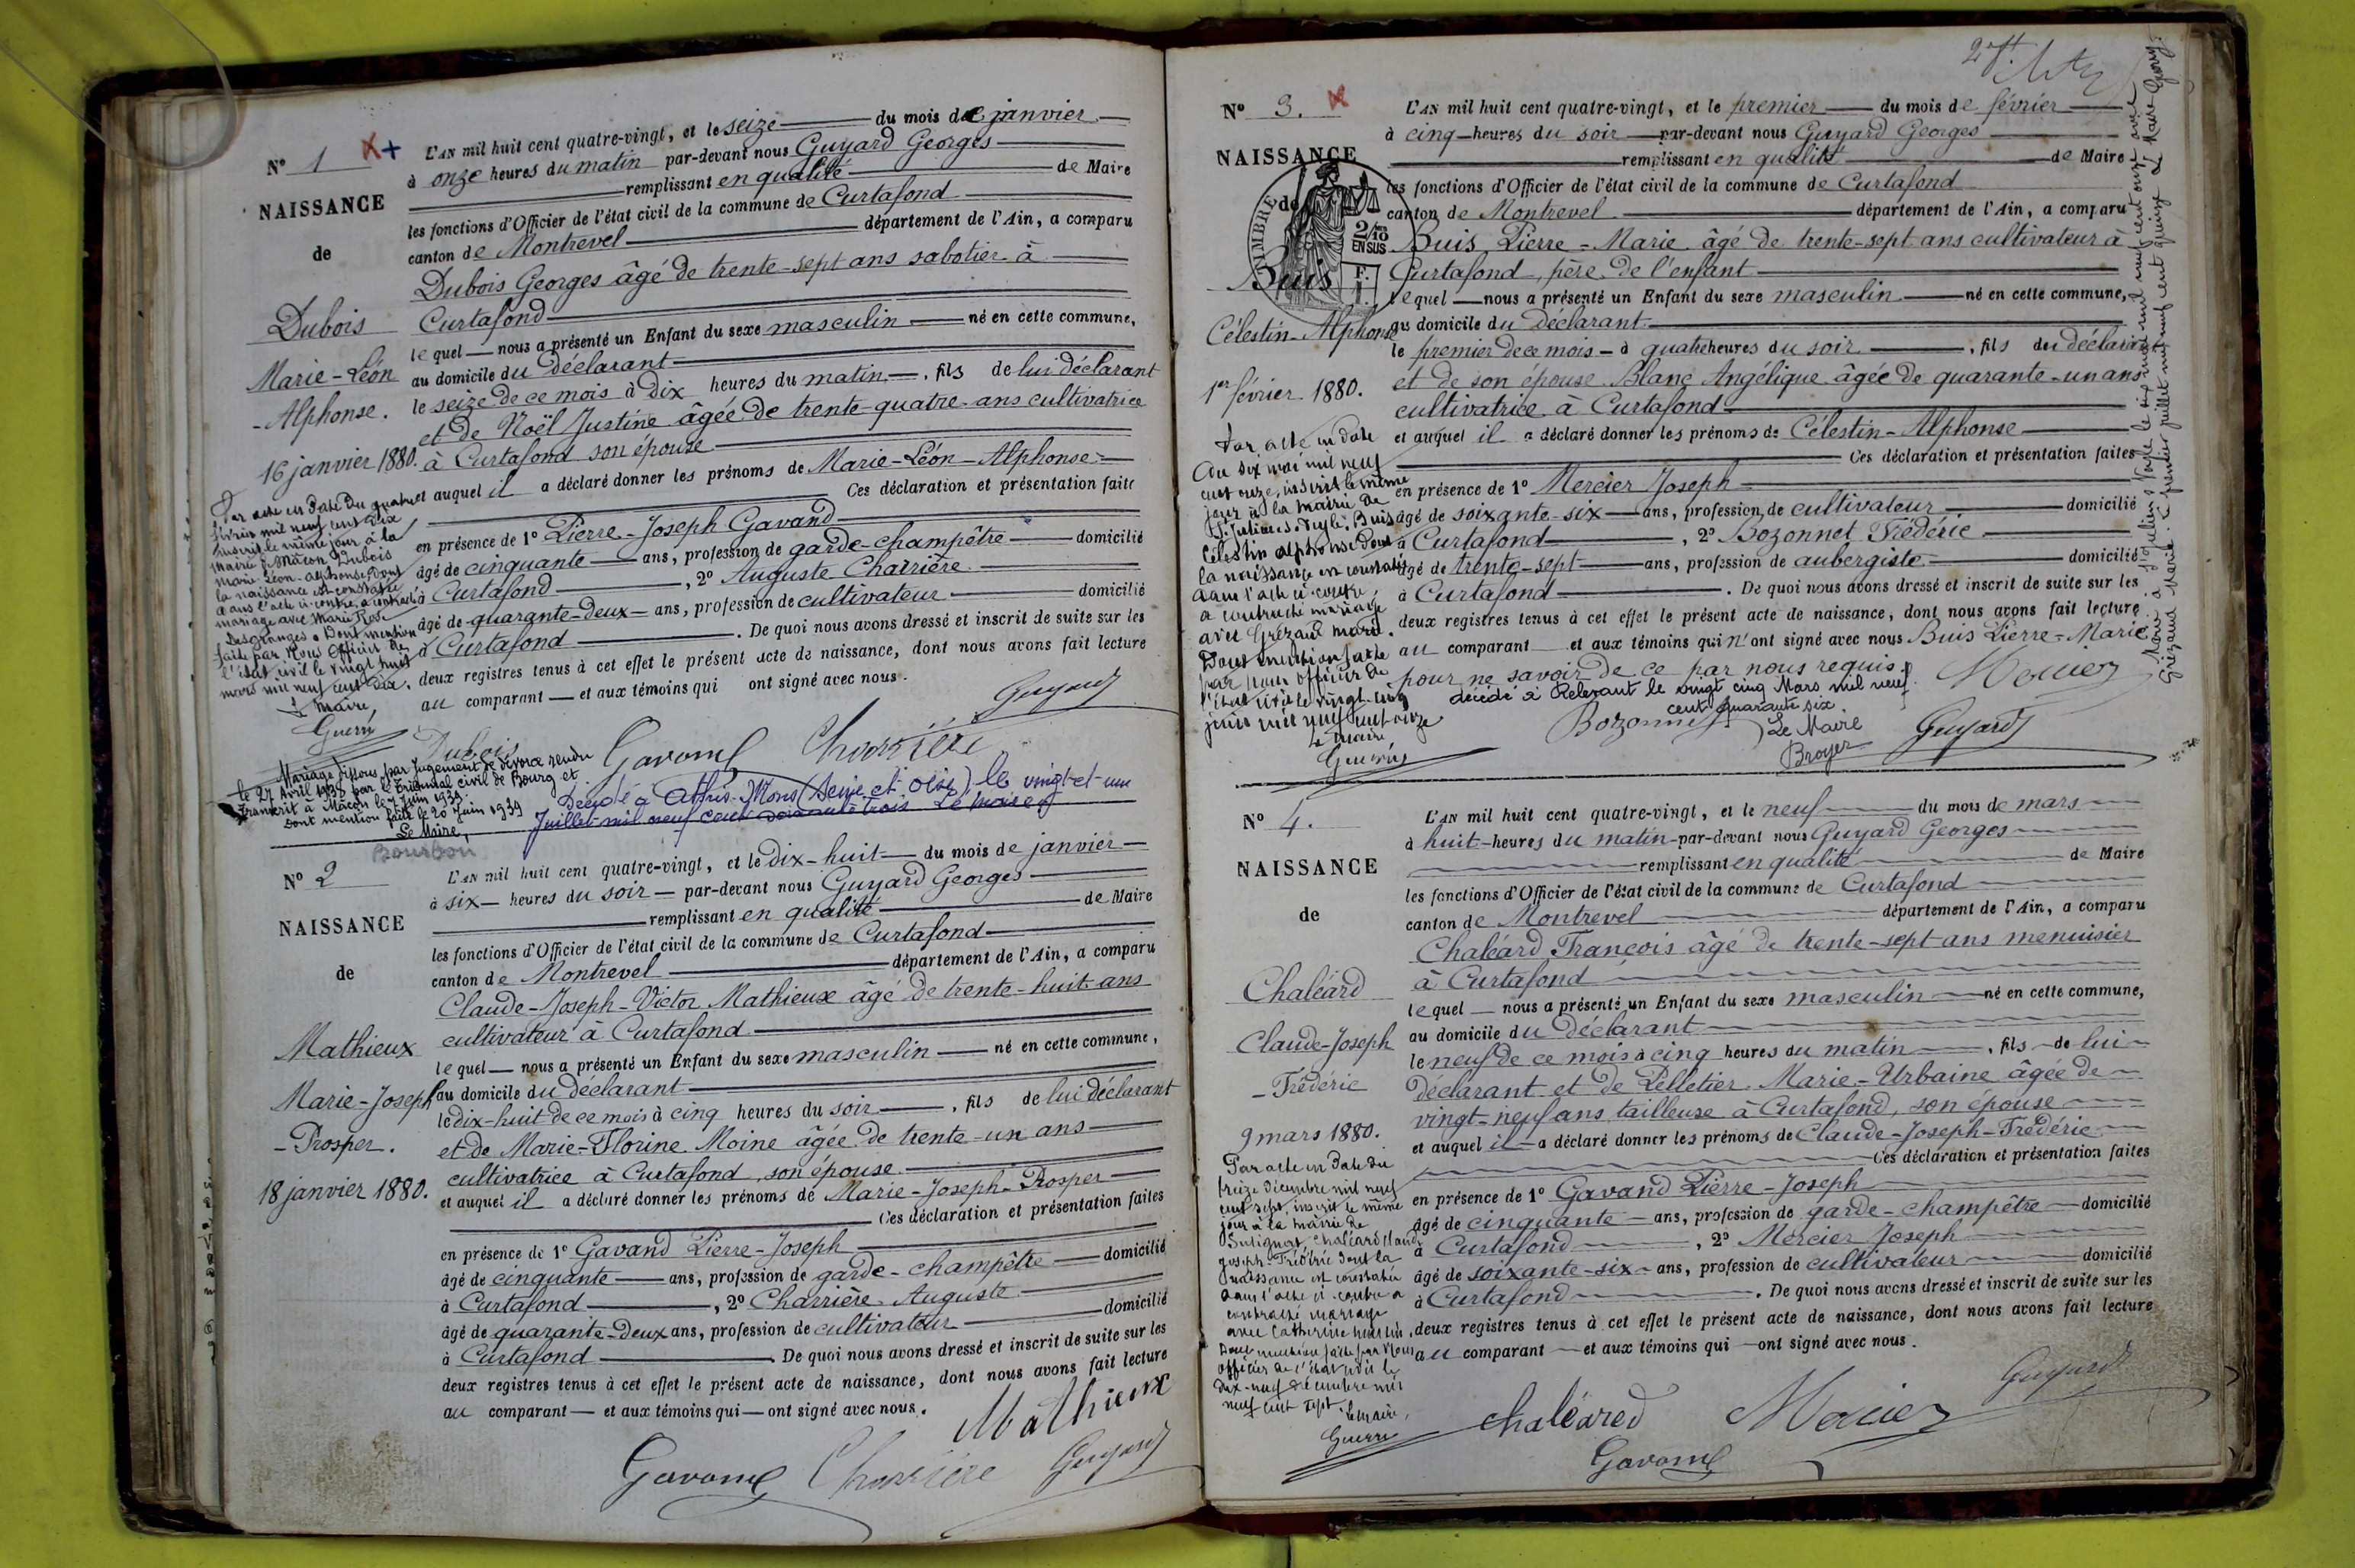 N° 1
NAISSANCE
de
Dubois
Marie-Léon
-Alphonse.
16 janvier 1880.
Par acte en date du quatre
février mil neuf cent dix
inscrit le même jour à la
mairie de Mâcon Dubois
Marie-Léon-Alphonse, dont
la naissance est constatée
dans l'acte ci-contre, a contracté
mariage avec Marie Rose
Desgranges. Dont mention
faite par Nous Officier de
l'état civil le vingt huit
mars mil neuf cent dix.
Le Maire,
L'AN mil huit cent quatre-vingt, et le seize du mois de janvier
à onze heures du matin par-devant nous Guyard Georges
remplissant en qualité de Maire
les fonctions d'Officier de l'état civil de la commune de Curtafond
canton de Montrevel département de l'Ain, a comparu
Dubois Georges âgé de trente-sept ans sabotier à
Curtafond
lequel nous a présenté un Enfant du sexe masculin né en cette commune,
au domicile du déclarant
le seize de ce mois à dix heures du matin, fils de lui déclarant
et de Noël Justine âgée de trente-quatre ans cultivatrice
à Curtafond son épouse
et auquel il a déclaré donner les prénoms de Marie-Léon-Alphonse
Ces déclaration et présentation faite
en présence de 1° Pierre-Joseph Gavand
âgé de cinquante ans, profession de garde-champêtre domicilié
à Curtafond, 2° Auguste Charrière
âgé de quarante-deux ans, profession de cultivateur domicilié
à Curtafond. De quoi nous avons dressé et inscrit de suite sur les
deux registres tenus à cet effet le présent acte de naissance, dont nous avons fait lecture
au comparant et aux témoins qui ont signé avec nous.
Guyard
Dubois Gavand Charrière
Mariage dissous par Jugement de divorce rendu
le 27 Avril 1938 par le Tribunal civil de Bourg et
transcrit à Mâcon le 7 Juin 1939.
Dont mention faite le 20 Juin 1939
Le Maire,
Bourbon
Décédé à Athis-Mons (Seine et Oise), le vingt-et-un
Juillet mil neuf cent Le Maire
N° 2
NAISSANCE
de
Mathieux
Marie-Joseph
-Prosper.
18 janvier 1880.
L'AN mil huit cent quatre-vingt, et le dix-huit du mois de janvier
à six heures du soir par-devant nous Guyard Georges
remplissant en qualité de Maire
les fonctions d'Officier de l'état civil de la commune de Curtafond
canton de Montrevel département de l'Ain, a comparu
Claude-Joseph-Victor Mathieux âgé de trente-huit ans
cultivateur à Curtafond
lequel nous a présenté un Enfant du sexe masculin né en cette commune,
au domicile du déclarant
le dix-huit de ce mois à cinq heures du soir, fils de lui déclarant
et de Marie-Florine Moine âgée de trente-un ans
cultivatrice à Curtafond, son épouse
et auquel il a déclaré donner les prénoms de Marie-Joseph-Prosper
Ces déclaration et présentation faites
en présence de 1° Gavand Pierre-Joseph
âgé de cinquante ans, profession de garde-champêtre domicilié
à Curtafond, 2° Charrière Auguste
âgé de quarante-deux ans, profession de cultivateur domicilié
à Curtafond. De quoi nous avons dressé et inscrit de suite sur les
deux registres tenus à cet effet le présent acte de naissance, dont nous avons fait lecture
au comparant et aux témoins qui ont signé avec nous.
Mathieux
Gavand Charrière Guyard
N° 3.
NAISSANCE
de
TIMBRE
2/10
EN SUS
Buis
Célestin-Alphonse
1er février 1880.
Par acte en date
du six mai mil neuf
cent onze, inscrit le même
jour à la mairie de
St Julien s. Veyle, Buis
Célestin Alphonse dont
la naissance est constatée
dans l'acte ci-contre,
a contracté mariage
avec Grézaud Marie.
Dont mention faite
par nous officier de
l'état civil le vingt cinq
juin mil neuf cent onze
Le Maire
L'AN mil huit cent quatre-vingt, et le premier du mois de février
à cinq heures du soir par-devant nous Guyard Georges
remplissant en qualité de Maire
les fonctions d'Officier de l'état civil de la commune de Curtafond
canton de Montrevel département de l'Ain, a comparu
Buis Pierre-Marie âgé de trente-sept ans cultivateur à
Curtafond, père de l'enfant
lequel nous a présenté un Enfant du sexe masculin né en cette commune,
au domicile du déclarant
le premier de ce mois à quatre heures du soir, fils du déclarant
et de son épouse Blanc Angélique âgée de quarante-un ans
cultivatrice à Curtafond
et auquel il a déclaré donner les prénoms de Célestin-Alphonse
Ces déclaration et présentation faites
en présence de 1° Mercier Joseph
âgé de soixante-six ans, profession de cultivateur domicilié
à Curtafond, 2° Bozonnet Frédéric
âgé de trente-sept ans, profession de aubergiste domicilié
à Curtafond. De quoi nous avons dressé et inscrit de suite sur les
deux registres tenus à cet effet le présent acte de naissance, dont nous avons fait lecture
au comparant et aux témoins qui n'ont signé avec nous Buis Pierre-Marie
pour ne savoir de ce par nous requis.
Mercier
décédé à Relevant le vingt cinq Mars mil neuf
cent quarante six.
Le Maire
Broyer
Bozonnet Guyard
N° 4.
NAISSANCE
de
Chaléard
Claude-Joseph
-Frédéric
9 mars 1880.
Par acte en date du
treize décembre mil neuf
cent sept, inscrit le même
jour à la mairie de
Buhignat, Chaléard Claude
Joseph-Frédéric dont la
naissance est constatée
dans l'acte ci-contre a
contracté mariage
avec Catherine
Dont mention faite par Nous
officier de l'état civil le
dix-neuf décembre mil
neuf cent sept. le maire,
L'AN mil huit cent quatre-vingt, et le neuf du mois de mars
à huit heures du matin par-devant nous Guyard Georges
remplissant en qualité de Maire
les fonctions d'Officier de l'état civil de la commune de Curtafond
canton de Montrevel département de l'Ain, a comparu
Chaléard François âgé de trente-sept ans menuisier
à Curtafond
lequel nous a présenté un Enfant du sexe masculin né en cette commune,
au domicile du déclarant
le neuf de ce mois à cinq heures du matin, fils de lui
déclarant et de Pelletier Marie-Urbaine âgée de
vingt-neuf ans tailleuse à Curtafond, son épouse
et auquel il a déclaré donner les prénoms de Claude-Joseph-Frédéric
Ces déclaration et présentation faites
en présence de 1° Gavand Pierre-Joseph
âgé de cinquante ans, profession de garde-champêtre domicilié
à Curtafond, 2° Mercier Joseph
âgé de soixante-six ans, profession de cultivateur domicilié
à Curtafond. De quoi nous avons dressé et inscrit de suite sur les
deux registres tenus à cet effet le présent acte de naissance, dont nous avons fait lecture
au comparant et aux témoins qui ont signé avec nous.
Guyard
chaléared Mercier
Gavand